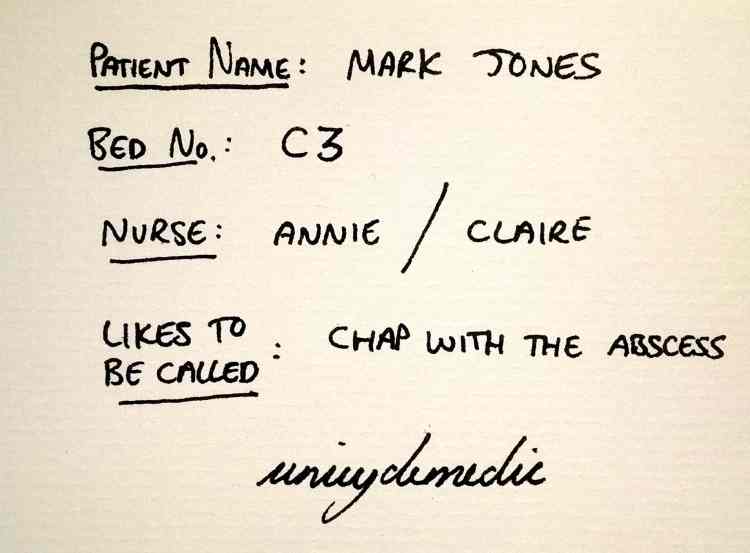 PATIENT NAME: MARK JONES
BED No.: C3
NURSE: ANNIE / CLAIRE
LIKES TO
BE CALLED : CHAP WITH THE ABSCESS
unicyclemedic